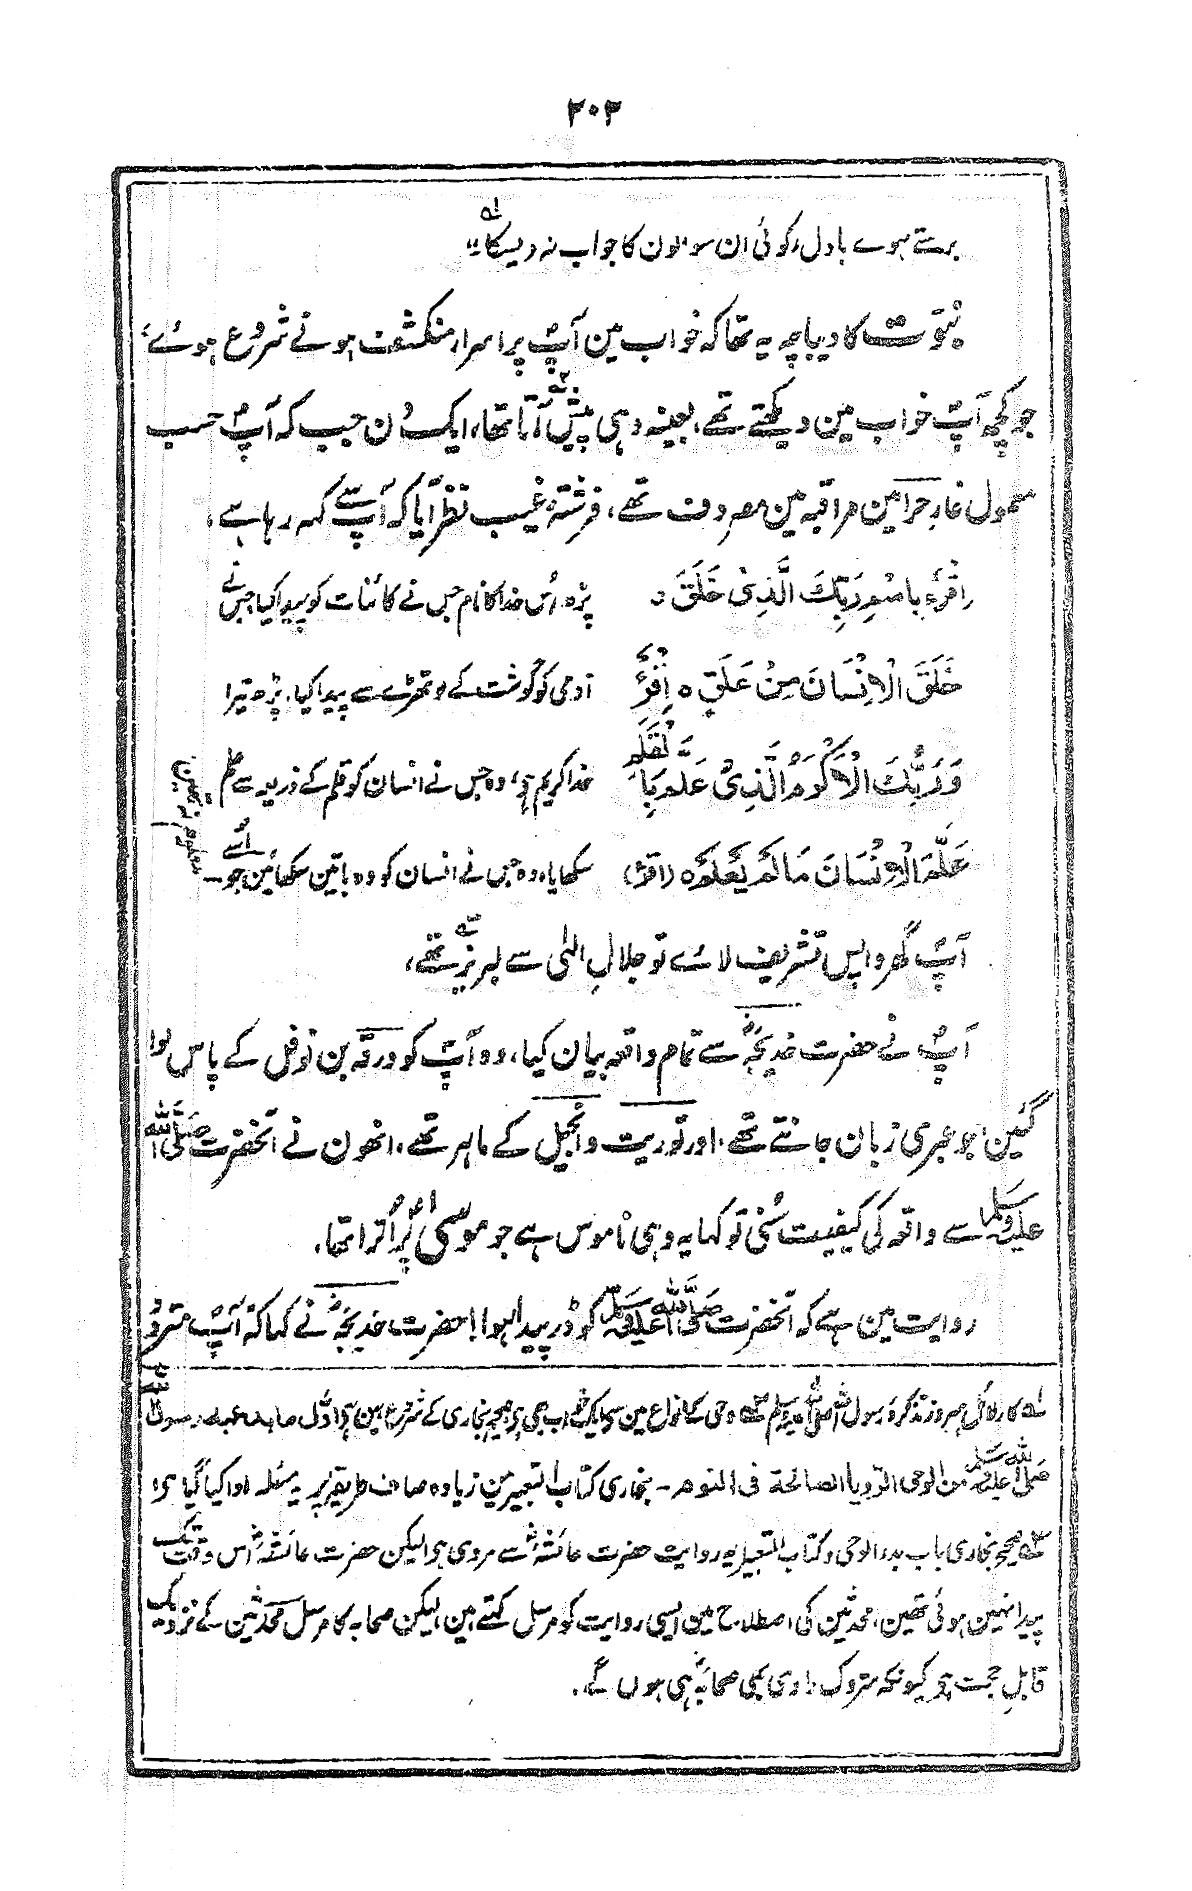 ۲۰۲
برستے ہوے بادل، کوئی ان سوالون کا جواب نہ دیسکا لہ"
نبوّت کا دیباچہ یہ تھا کہ خواب مین آپؐ پر اسرار منکشف ہونے شروع ہوئے،
جو کچھ آپؐ خواب مین دیکھتے تھے، بعینہ وہی پیش آتا تھا، ایک دن جب کہ آپؐ حسب
معمول غارِ حرا مین مراقبہ مین مصروف تھے، فرشتۂ غیب نظر آیا کہ آپؐ سے کہہ رہا ہے،
اِقْرَءْ بِاسْمِ رَبِّكَ الَّذِیْ خَلَقَ ہ پڑھ اُس خدا کا نام جس نے کائنات کو پیدا کیا جس نے
خَلَقَ الْاِنْسَانَ مِنْ عَلَقٍ ہ اِقْرَءْ آدمی کو گوشت کے لوتھڑے سے پیدا کیا، پڑھ تیرا
وَرَبُّكَ الْاَكْرَمُ الَّذِیْ عَلَّمَ بِالْقَلَمِ خدا کریم ہے، وہ جس نے انسان کو قلم کے ذریعہ سے علم
عَلَّمَ الْاِنْسَانَ مَا لَمْ یَعْلَمْ ہ (اقرأ) سکھایا، وہ جس نے انسان کو وہ باتین سکھائین جو اُسے معلوم نہ تھین
آپؐ گھر واپس تشریف لائے تو جلالِ الٰہی سے لبریز تھے،
آپؐ نے حضرت خدیجہؓ سے تمام واقعہ بیان کیا، وہ آپؐ کو ورقہ بن نوفل کے پاس لوا
گئین، جو عبری زبان جانتے تھے، اور توریت و انجیل کے ماہر تھے، انھون نے آنحضرت صلّی اللہ
علیہ وسلم سے واقعہ کی کیفیت سُنی تو کہا یہ وہی ناموس ہے جو موسیٰؑ پر اُترا تھا،
روایت مین ہے کہ آنحضرت صلّی اللہ علیہ وسلم کو ڈر پیدا ہوا! حضرت خدیجہؓ نے کہا کہ آپؐ متردّد
لہ کارلائل ہیروز تذکرہ رسول اللہ صلی اللہ علیہ وسلم وحی کے انواع مین سے ایک خواب بھی ہے، صحیح بخاری کے شروع مین ہے اوّل ما بدئ بہ رسول اللہ
صلی اللہ علیہ وسلم من الوحی الرّویا الصالحۃ فی النوم - بخاری کتاب التعبیر مین زیادہ صاف طریقہ پر یہ مسئلہ ادا کیا گیا ہے،
صحیح بخاری باب بدء الوحی و کتاب التعبیر یہ روایت حضرت عائشہؓ سے مروی ہے لیکن حضرت عائشہؓ اس وقت تک
پیدا نہین ہوئی تھین، محدثین کی اصطلاح مین ایسی روایت کو مرسل کہتے ہین، لیکن صحابہ کا مرسل محدثین کے نزدیک
قابلِ حجت ہے کیونکہ متروک راوی بھی صحابہؓ ہی ہوں گے،